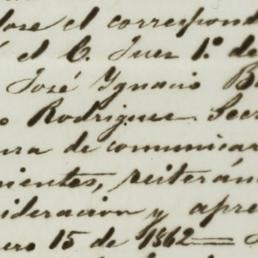 dose el correspond
el C. Juez 1.º de
José Ygnacio B
o Rodriguez Secr
ura de comunicar
nientes, reiterán
sideracion y apre
ero 15 de 1862